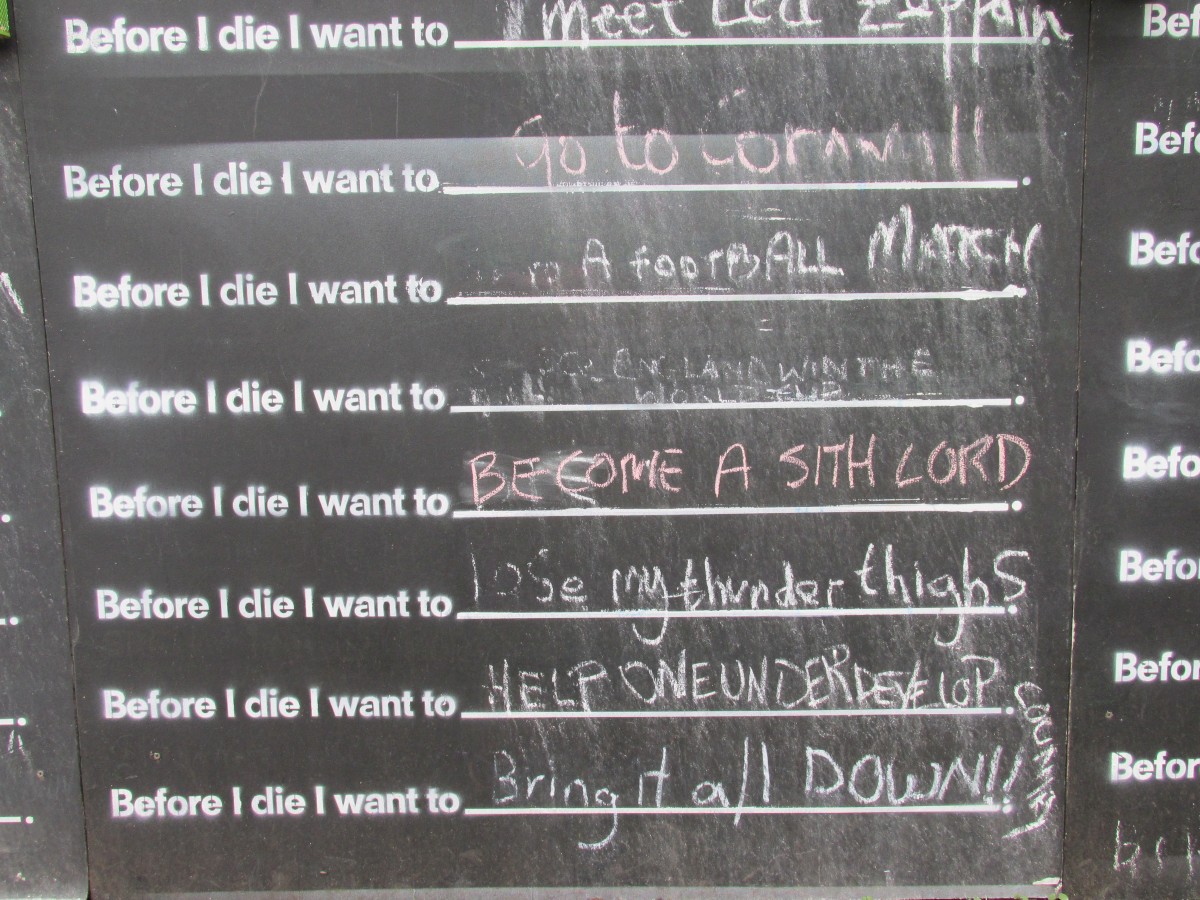 Before I die I want to I Meet Led Zeppain.
Before I die I want to Go to Cornwall.
Before I die I want to A FOOTBALL MATCH.
Before I die I want to SEE ENGLAND WIN THE
WORLD CUP.
Before I die I want to BECOME A SITH LORD.
Before I die I want to lose my thunder thighs.
Before I die I want to HELP ONE UNDERDEVELOP.
COUNTRY
Before I die I want to Bring it all DOWN!!.
Bef
Befo
Befo
Befo
Befo
Befor
Befor
Befor